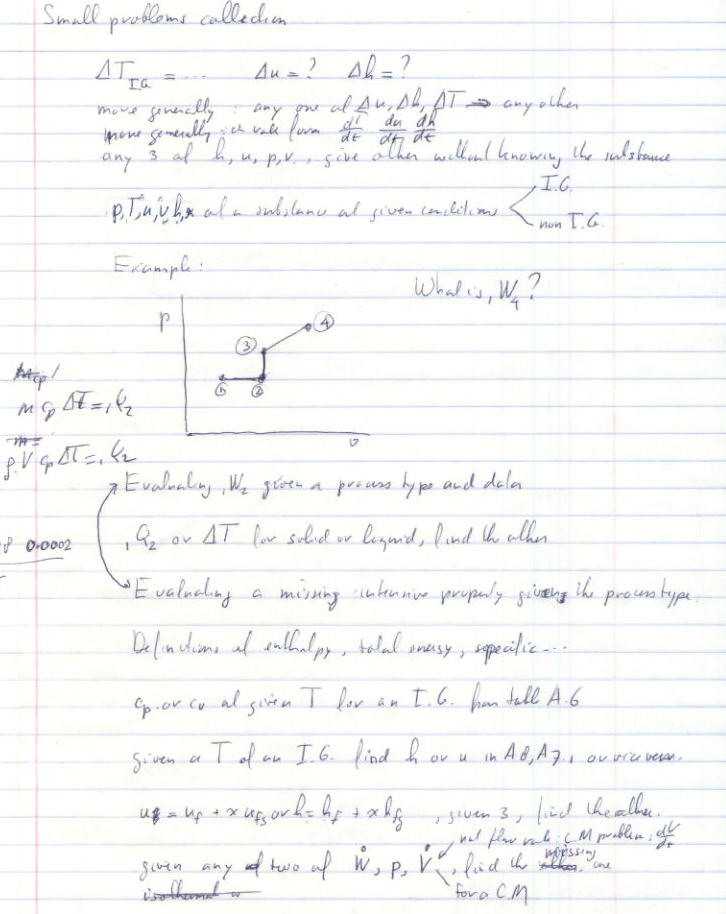 Small problems collection
ΔT I.G. = ... Δu = ? Δh = ?
more generally : any one of Δu, Δh, ΔT ⇒ any other
more generally in rate form dT/dt du/dt dh/dt
any 3 of h, u, p, v , give other without knowing the substance
p, T, u, v, h, x of a substance at given conditions < I.G.
non I.G.
Example:
What is ₁W₄?
p
④
③
① ②
v
m cp Δt = ₁Q₂
m =
ρ V cp ΔT = ₁Q₂
Evaluating ₁W₂ given a process type and data
0.0002
₁Q₂ or ΔT for solid or liquid, find the other
Evaluating a missing intensive property given the process type
Definitions of enthalpy, total energy, specific ...
cp or cv at given T for an I.G. from table A.6
given a T of an I.G. find h or u in A8, A7.1 or viceversa.
u = uf + x ufg or h = hf + x hfg , given 3, find the other.
vol flow rate: C.M problem: dV/dt
given any two of Ẇ, p, V̇, find the missing one
for a C.M